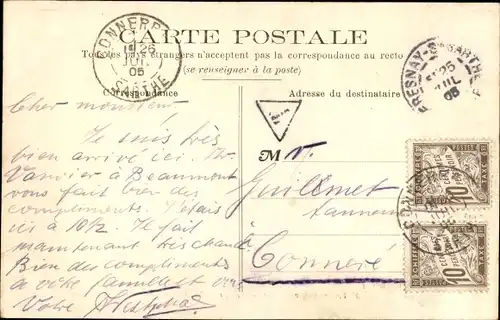 CARTE POSTALE
Tous les pays étrangers n'acceptent pas la correspondance au recto
(se renseigner à la poste)
Correspondance
Adresse du destinataire
CONNERRÉ
26
JUIL
05
SARTHE
FRESNAY-S-SARTHE
26
JUIL
05
Cher monsieur
Je suis très
bien arrivé ici. Mr
Vanvier à Beaumont
vous fait bien des
compliments. J'étais
ici à 10 1/2. Il fait
maintenant très chaud
Bien des compliments
à votre famille et
Votre
M r.
Guillmet
tanneur
à
Conneré
10
CENTIMES
À PERCEVOIR
TAXE
10
CENTIMES
À PERCEVOIR
TAXE